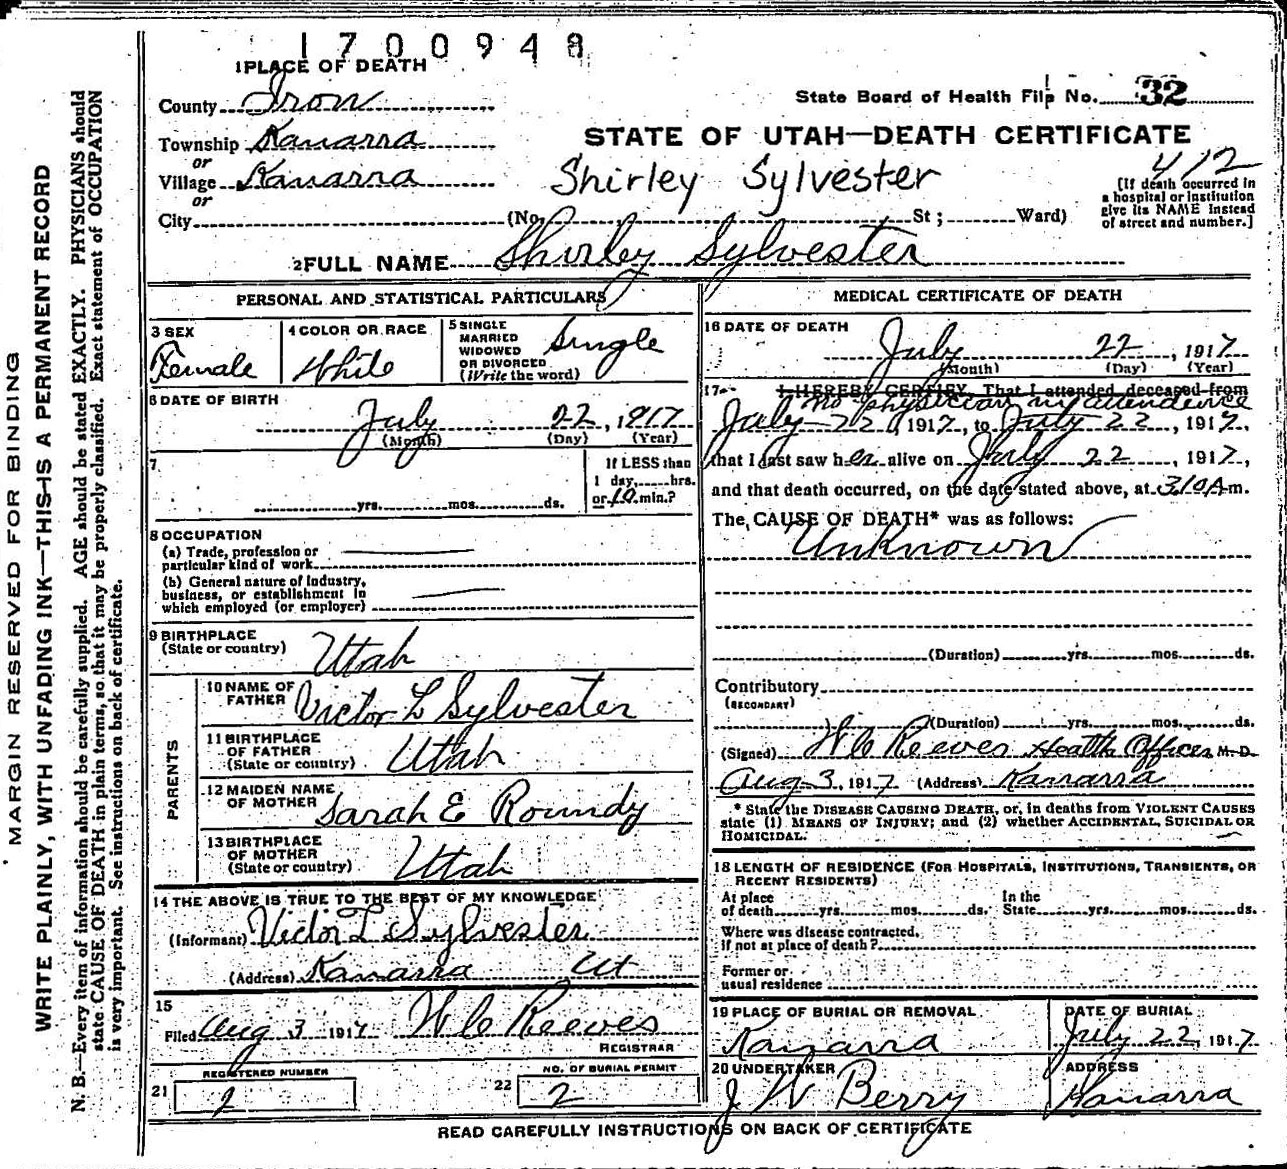 1700948
1 PLACE OF DEATH
County Iron
State Board of Health File No. 32
Township Kanarra
or
STATE OF UTAH—DEATH CERTIFICATE
Village Kanarra
or
Shirley Sylvester
412
[If death occurred in
a hospital or institution
give its NAME instead
of street and number.]
City (No. St; Ward)
2 FULL NAME Shirley Sylvester
PERSONAL AND STATISTICAL PARTICULARS
3 SEX
Female
4 COLOR OR RACE
White
5 SINGLE
MARRIED
WIDOWED
OR DIVORCED
(Write the word)
Single
6 DATE OF BIRTH
July 22, 1917
(Month) (Day) (Year)
7
yrs. mos. ds.
If LESS than
1 day, hrs.
or 10 min.?
8 OCCUPATION
(a) Trade, profession or
particular kind of work
(b) General nature of industry,
business, or establishment in
which employed (or employer)
9 BIRTHPLACE
(State or country)
Utah
PARENTS
10 NAME OF
FATHER
Victor L Sylvester
11 BIRTHPLACE
OF FATHER
(State or country)
Utah
12 MAIDEN NAME
OF MOTHER
Sarah E Roundy
13 BIRTHPLACE
OF MOTHER
(State or country)
Utah
14 THE ABOVE IS TRUE TO THE BEST OF MY KNOWLEDGE
(Informant) Victor L Sylvester
(Address) Kanarra Ut
15
Filed Aug 3 1917 W C Reeves
REGISTRAR
21
REGISTERED NUMBER
2
22
NO. OF BURIAL PERMIT
2
MEDICAL CERTIFICATE OF DEATH
16 DATE OF DEATH
July 22, 1917
(Month) (Day) (Year)
17 I HEREBY CERTIFY, That I attended deceased from
no physician in attendence
July 22, 1917, to July 22, 1917,
that I last saw her alive on July 22, 1917,
and that death occurred, on the date stated above, at 3/0 A m.
The CAUSE OF DEATH* was as follows:
Unknown
(Duration) yrs. mos. ds.
Contributory
(SECONDARY)
(Duration) yrs. mos. ds.
(Signed) W C Reeves Health Officer M. D.
Aug 3, 1917 (Address) Kanarra
* State the DISEASE CAUSING DEATH, or, in deaths from VIOLENT CAUSES
state (1) MEANS OF INJURY; and (2) whether ACCIDENTAL, SUICIDAL OR
HOMICIDAL.
18 LENGTH OF RESIDENCE (FOR HOSPITALS, INSTITUTIONS, TRANSIENTS, OR
RECENT RESIDENTS)
At place
of death yrs. mos. ds.
In the
State yrs. mos. ds.
Where was disease contracted,
if not at place of death?
Former or
usual residence
19 PLACE OF BURIAL OR REMOVAL
Kanarra
DATE OF BURIAL
July 22, 1917
20 UNDERTAKER
J W Berry
ADDRESS
Kanarra
READ CAREFULLY INSTRUCTIONS ON BACK OF CERTIFICATE
MARGIN RESERVED FOR BINDING
WRITE PLAINLY, WITH UNFADING INK—THIS IS A PERMANENT RECORD
N. B.—Every item of information should be carefully supplied. AGE should be stated EXACTLY. PHYSICIANS should
state CAUSE OF DEATH in plain terms, so that it may be properly classified. Exact statement of OCCUPATION
is very important. See instructions on back of certificate.